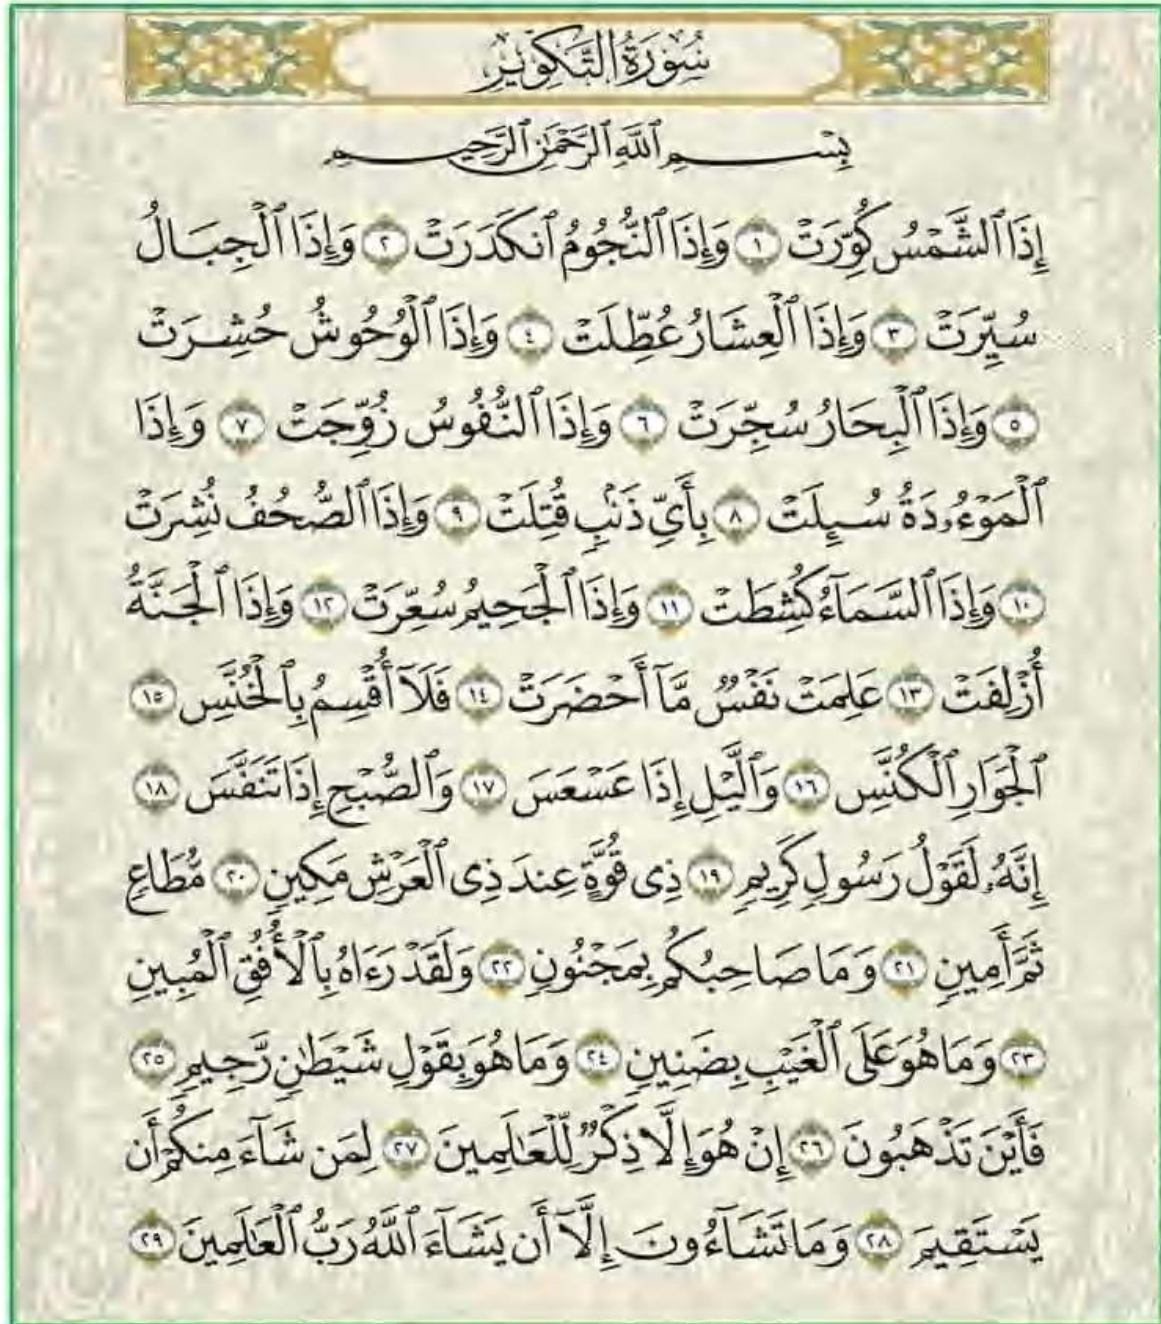 سُورَةُ التَّكْوِيرِ
بِسْمِ ٱللَّهِ ٱلرَّحْمَٰنِ ٱلرَّحِيمِ
إِذَا ٱلشَّمْسُ كُوِّرَتْ ١ وَإِذَا ٱلنُّجُومُ ٱنكَدَرَتْ ٢ وَإِذَا ٱلْجِبَالُ
سُيِّرَتْ ٣ وَإِذَا ٱلْعِشَارُ عُطِّلَتْ ٤ وَإِذَا ٱلْوُحُوشُ حُشِرَتْ
٥ وَإِذَا ٱلْبِحَارُ سُجِّرَتْ ٦ وَإِذَا ٱلنُّفُوسُ زُوِّجَتْ ٧ وَإِذَا
ٱلْمَوْءُۥدَةُ سُئِلَتْ ٨ بِأَىِّ ذَنۢبٍ قُتِلَتْ ٩ وَإِذَا ٱلصُّحُفُ نُشِرَتْ
١٠ وَإِذَا ٱلسَّمَآءُ كُشِطَتْ ١١ وَإِذَا ٱلْجَحِيمُ سُعِّرَتْ ١٢ وَإِذَا ٱلْجَنَّةُ
أُزْلِفَتْ ١٣ عَلِمَتْ نَفْسٌ مَّآ أَحْضَرَتْ ١٤ فَلَآ أُقْسِمُ بِٱلْخُنَّسِ ١٥
ٱلْجَوَارِ ٱلْكُنَّسِ ١٦ وَٱلَّيْلِ إِذَا عَسْعَسَ ١٧ وَٱلصُّبْحِ إِذَا تَنَفَّسَ ١٨
إِنَّهُۥ لَقَوْلُ رَسُولٍ كَرِيمٍ ١٩ ذِى قُوَّةٍ عِندَ ذِى ٱلْعَرْشِ مَكِينٍ ٢٠ مُّطَاعٍ
ثَمَّ أَمِينٍ ٢١ وَمَا صَاحِبُكُم بِمَجْنُونٍ ٢٢ وَلَقَدْ رَءَاهُ بِٱلْأُفُقِ ٱلْمُبِينِ
٢٣ وَمَا هُوَ عَلَى ٱلْغَيْبِ بِضَنِينٍ ٢٤ وَمَا هُوَ بِقَوْلِ شَيْطَٰنٍ رَّجِيمٍ ٢٥
فَأَيْنَ تَذْهَبُونَ ٢٦ إِنْ هُوَ إِلَّا ذِكْرٌ لِّلْعَٰلَمِينَ ٢٧ لِمَن شَآءَ مِنكُمْ أَن
يَسْتَقِيمَ ٢٨ وَمَا تَشَآءُونَ إِلَّآ أَن يَشَآءَ ٱللَّهُ رَبُّ ٱلْعَٰلَمِينَ ٢٩